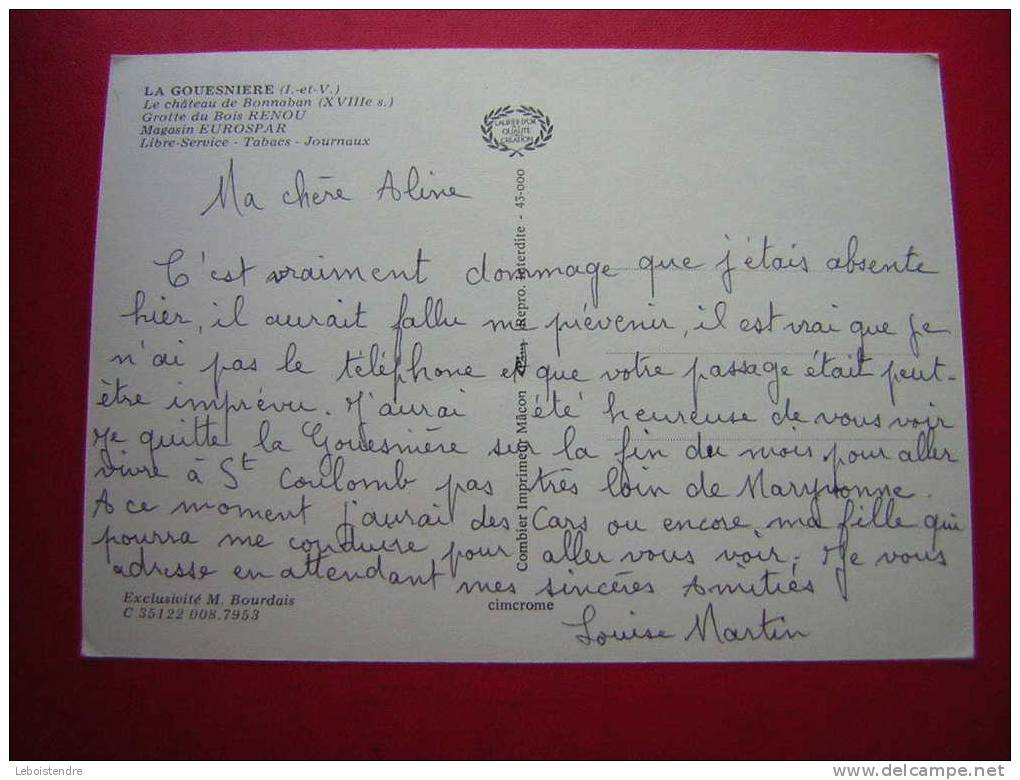 LA GOUESNIERE (I.-et-V.)
Le château de Bonnaban (XVIIIe s.)
Grotte du Bois RENOU
Magasin EUROSPAR
Libre-Service - Tabacs - Journaux
LAURIER D'OR
DE LA
QUALITÉ
CRÉATION
Ma chère Aline
C'est vraiment dommage que j'étais absente
hier, il aurait fallu me prévenir, il est vrai que je
n'ai pas le téléphone et que votre passage était peut-
être imprévu. J'aurai été heureuse de vous voir
Je quitte la Gouesnière sur la fin du mois pour aller
vivre à St Coulomb pas très loin de Maryvonne.
A ce moment j'aurai des Cars ou encore ma fille qui
pourra me conduire pour aller vous voir, Je vous
adresse en attendant mes sincères Amitiés
Louise Martin
Combier Imprimeur Mâcon Repro. Interdite - 43-000
Exclusivité M. Bourdais
C 35122 008.7953
cimcrome
Leboistendre
delcampe.net